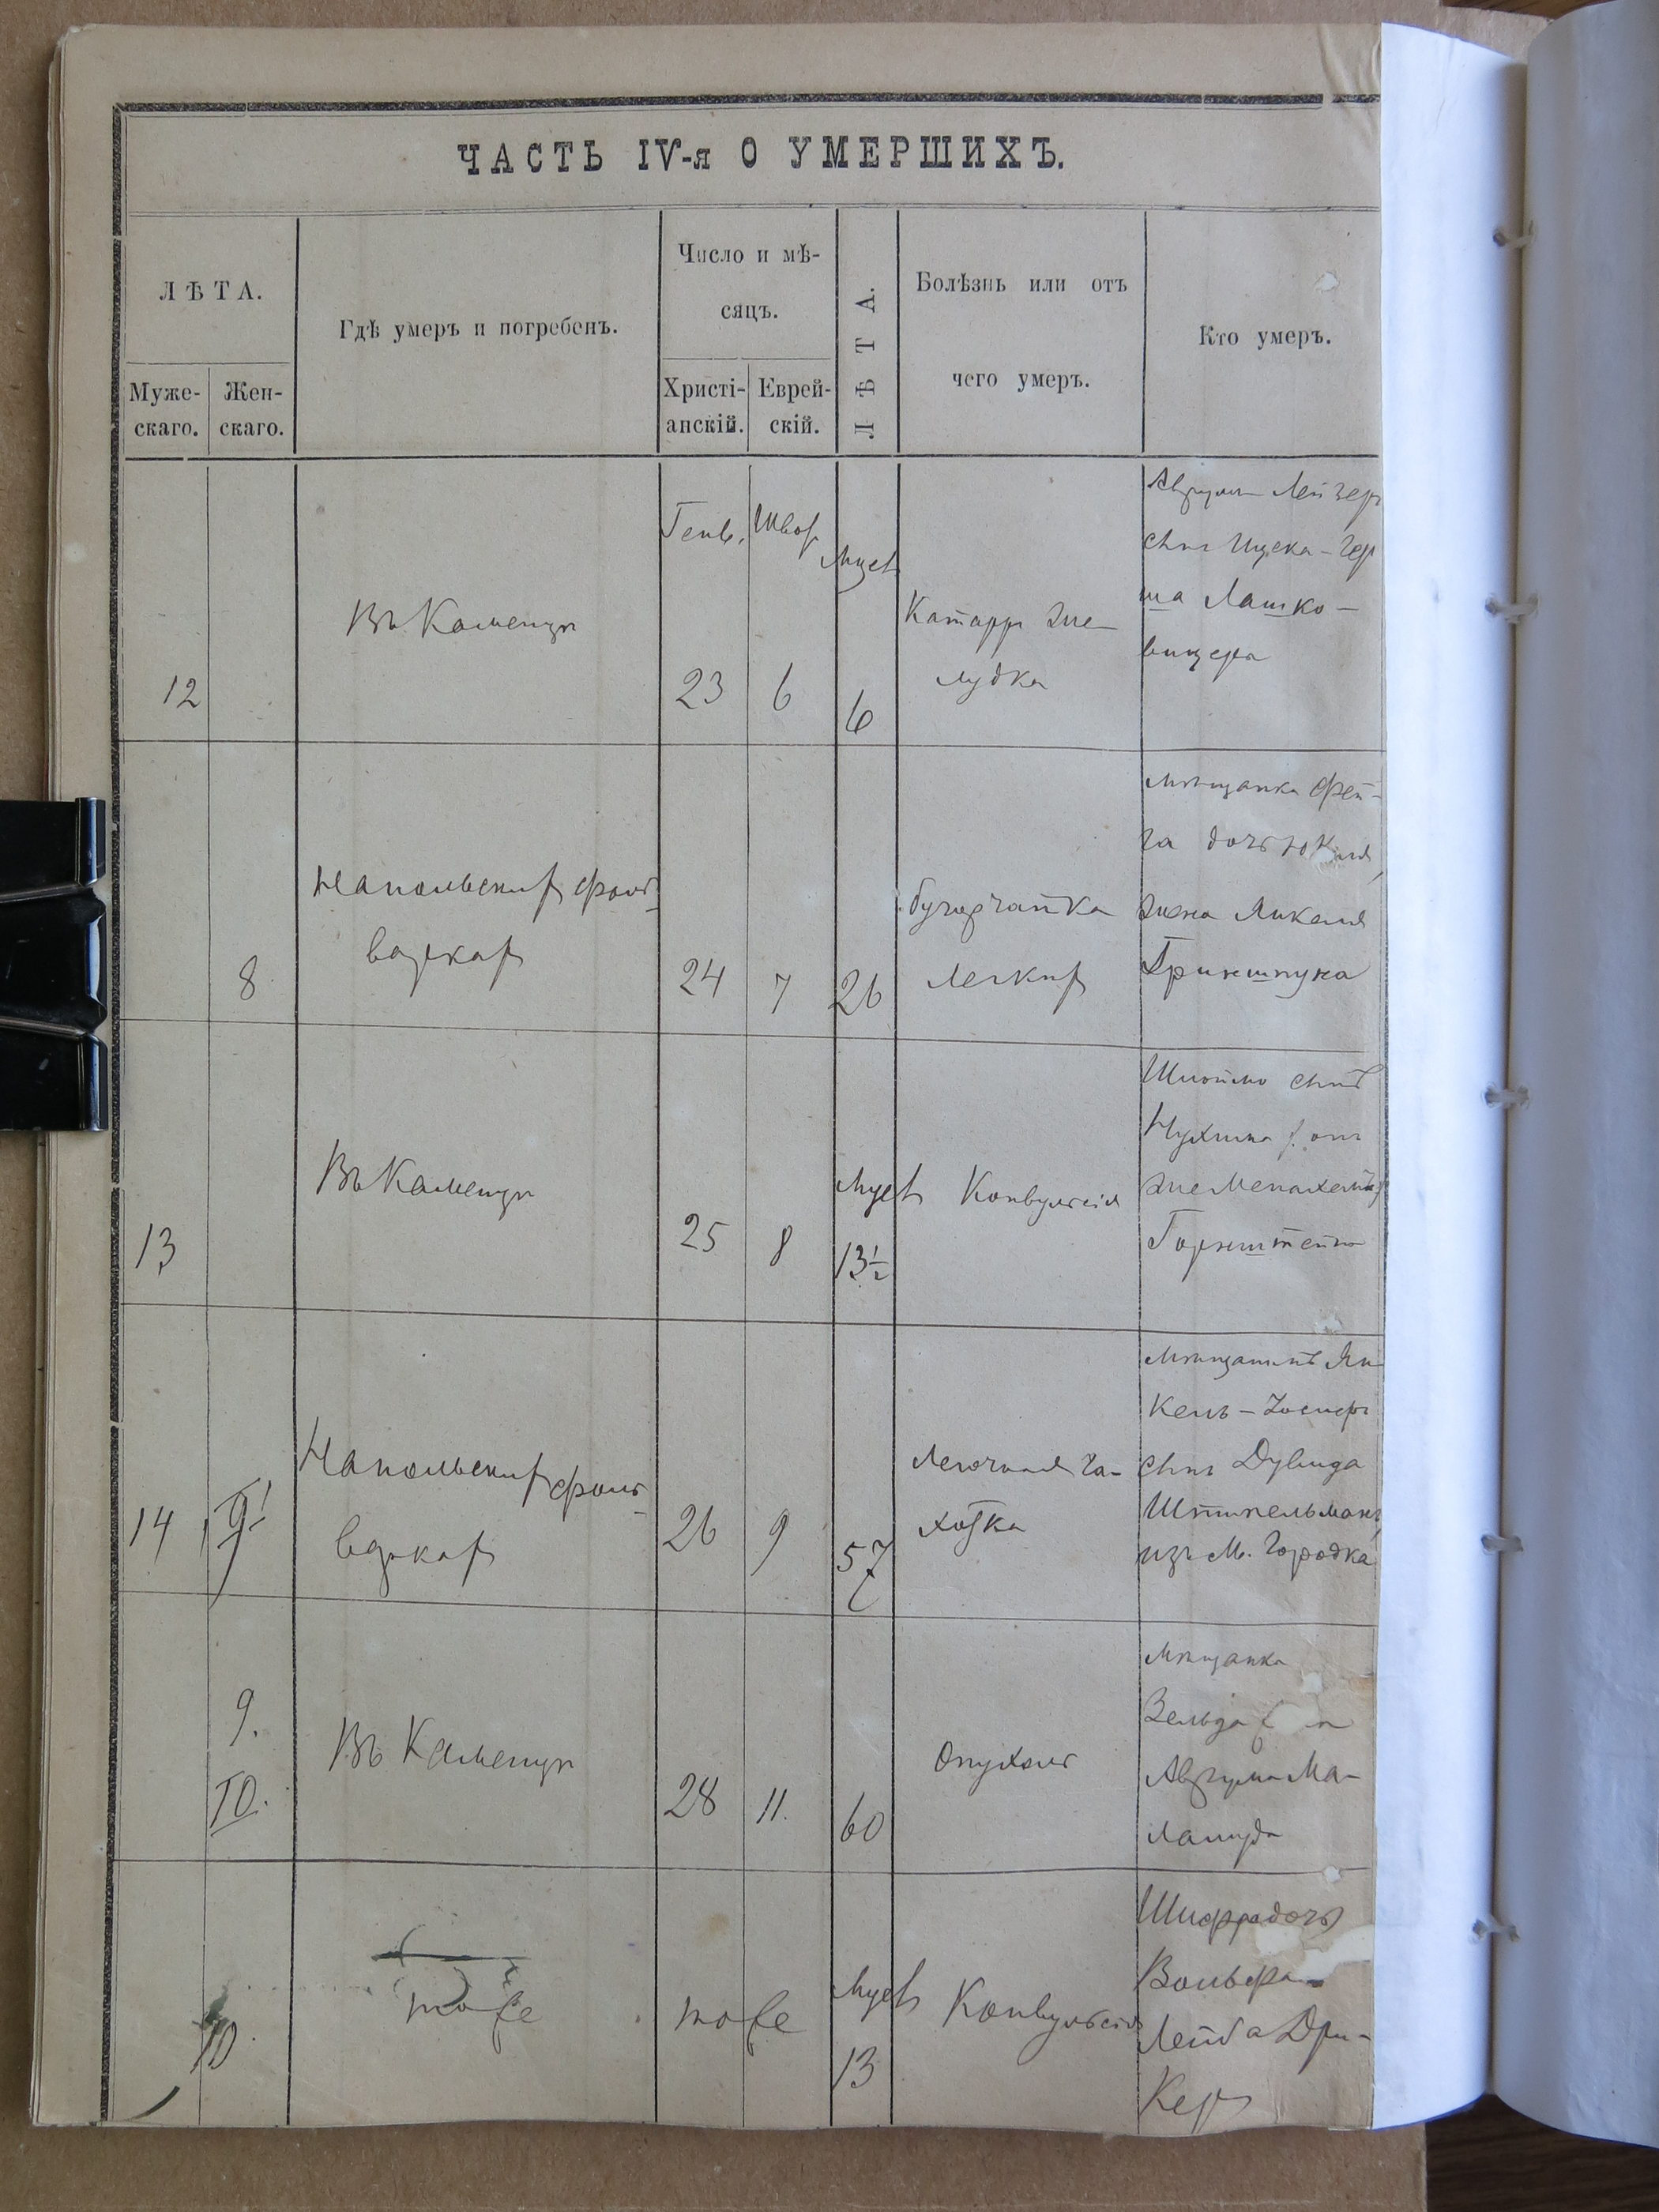 ЧАСТЬ IV-я О УМЕРШИХЪ.
ЛѢТА.
Муже-
скаго.
Жен-
скаго.
Гдѣ умеръ и погребенъ.
Число и мѣ-
сяцъ.
Христі-
анскій.
Еврей-
скій.
ЛѢТА.
Болѣзнь или отъ
чего умеръ.
Кто умеръ.
12
Въ Каменцѣ
Генв.
23
Швор
6
Мцев
6
Катарръ же-
лудка
Аврумъ Лейзеръ
сынъ Ицека-Гер
ша Лашко-
вицера
8
На польских фоль-
варках
24
7
26
бугорчатка
легких
мѣщанка Фей-
га дочь Юкеля,
жена Микеля
Гриншпуна
13
Въ Каменцѣ
25
8
Мцев
13½
Конвульсія
Шлойме сынъ
Нухима
Горнштейна
14
9
На польских фоль-
варках
26
9
57
Легочная ча-
хотка
мѣщанинъ Ян-
кель-Іосифъ
сынъ Дувида
Штипельманъ,
изъ м. Городка
9.
10.
Въ Каменцѣ
28
11.
60
Опухоль
мѣщанка
Зельда
Аврума Ма-
ламуда
10
тоже
тоже
Мцев
13
Конвульсія
Шифра дочь
Вольфа
Лейба Дри-
Керъ